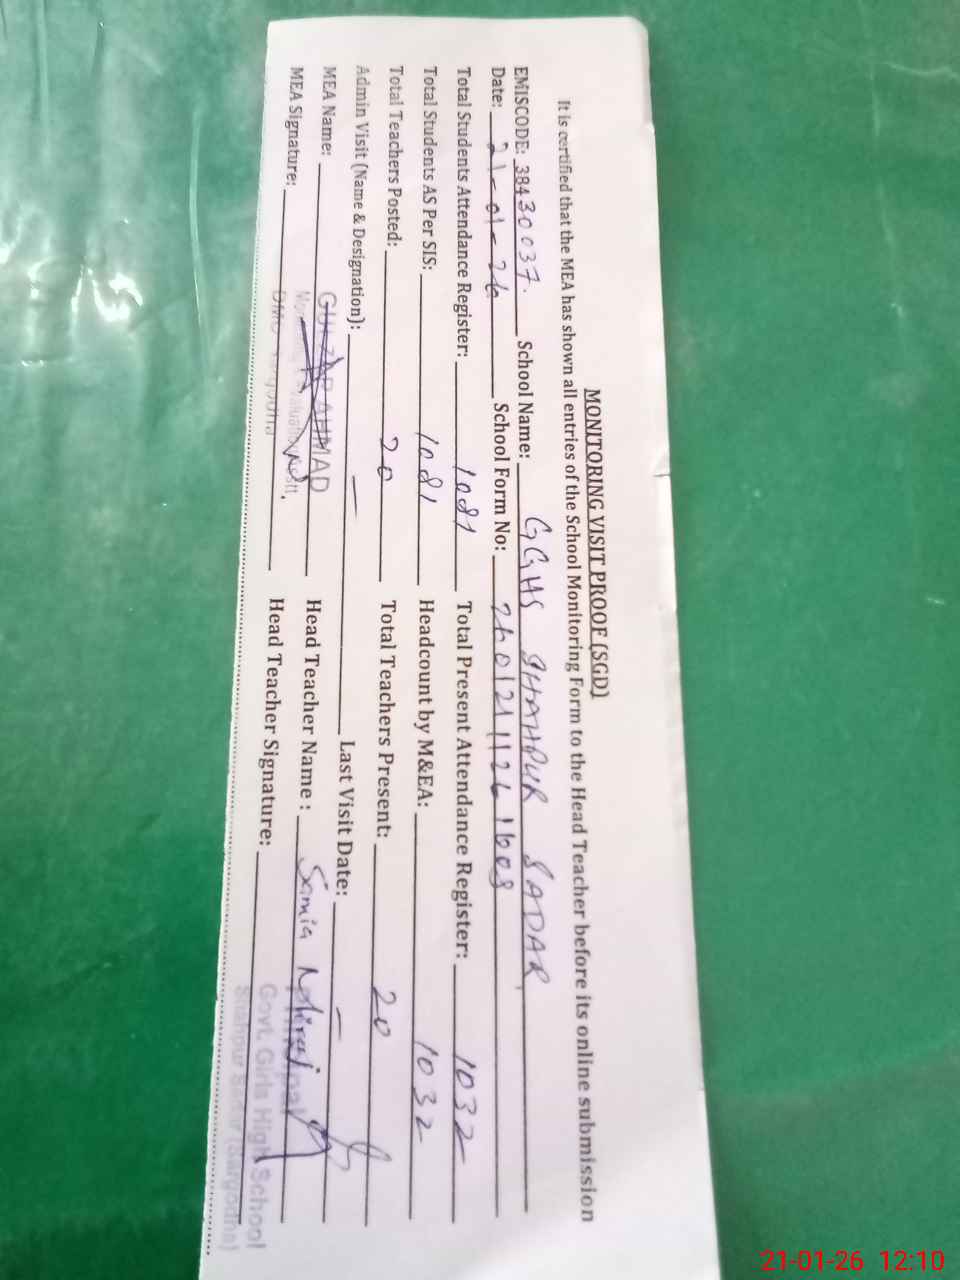 MONITORING VISIT PROOF (SGD)
It is certified that the MEA has shown all entries of the School Monitoring Form to the Head Teacher before its online submission
EMISCODE: 38430037. School Name: GGHS SHAHPUR SADAR
Date: 21-01-26 School Form No: 26012111261608
Total Students Attendance Register: 1081 Total Present Attendance Register: 1032
Total Students AS Per SIS: 1081 Headcount by M&EA: 1032
Total Teachers Posted: 20 Total Teachers Present: 20
Admin Visit (Name & Designation): — Last Visit Date: —
MEA Name: GULZAR AHMAD Head Teacher Name : Samia
Monitoring Evaluation Asstt. Principal
MEA Signature: Head Teacher Signature:
DMO Sargodha Govt. Girls High School
Shahpur Sadar (Sargodha)
21-01-26 12:10